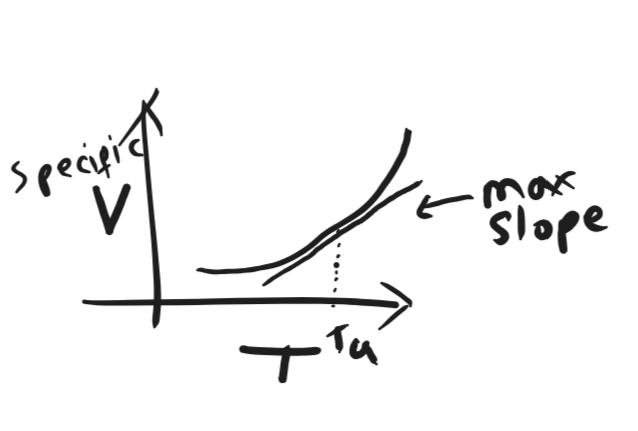 specific
V
max
slope
Ta
T